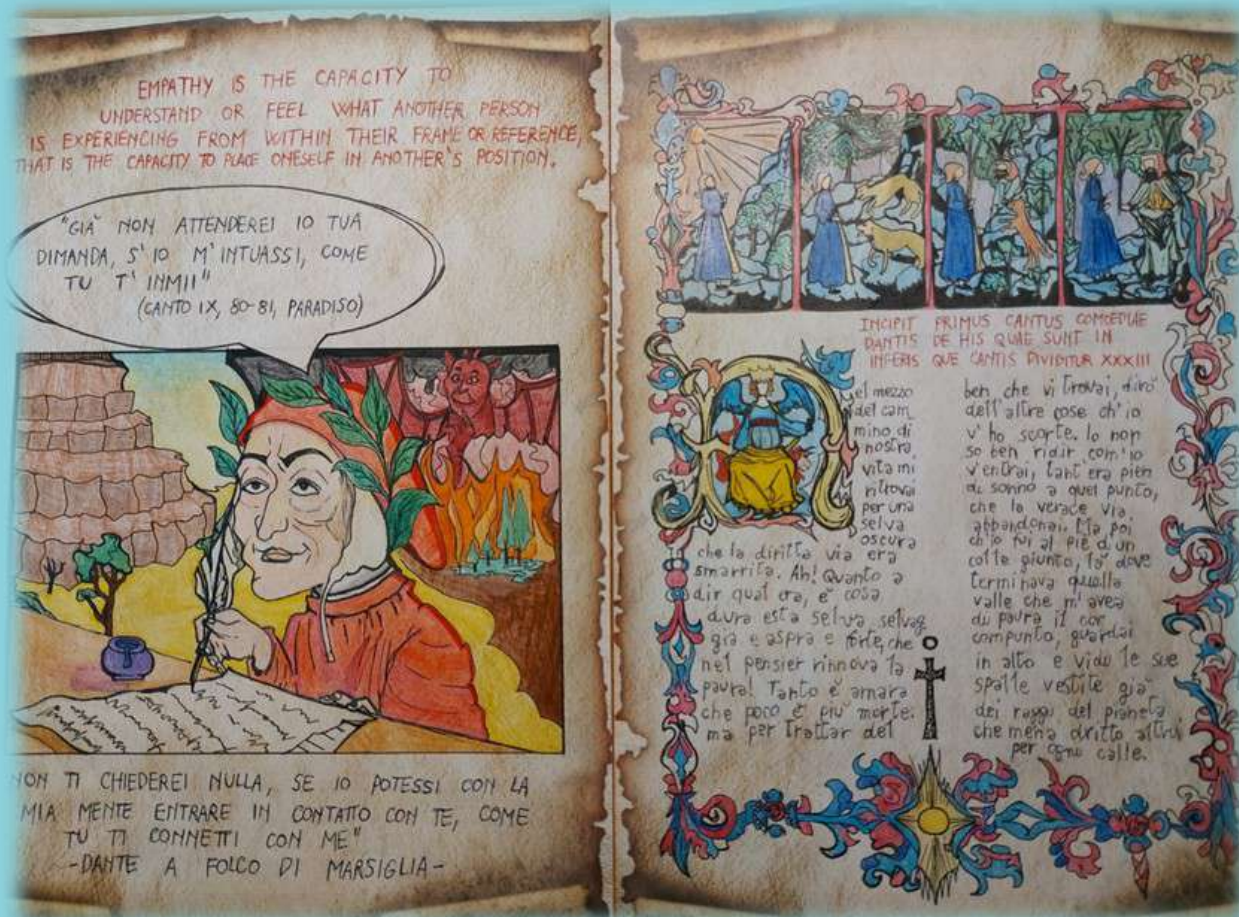 EMPATHY IS THE CAPACITY TO
UNDERSTAND OR FEEL WHAT ANOTHER PERSON
IS EXPERIENCING FROM WITHIN THEIR FRAME OR REFERENCE,
THAT IS THE CAPACITY TO PLACE ONESELF IN ANOTHER'S POSITION.
"GIÀ NON ATTENDEREI IO TUA
DIMANDA, S'IO M'INTUASSI, COME
TU T'INMII"
(CANTO IX, 80-81, PARADISO)
NON TI CHIEDEREI NULLA, SE IO POTESSI CON LA
MIA MENTE ENTRARE IN CONTATTO CON TE, COME
TU TI CONNETTI CON ME"
-DANTE A FOLCO DI MARSIGLIA-
INCIPIT PRIMUS CANTUS COMOEDIAE
DANTIS DE HIS QUAE SUNT IN
INFERIS QUE CANTIS DIVIDITUR XXXIII
N
el mezzo
del cam
mino di
nostra
vita mi
ritrovai
per una
selva
oscura
che la diritta via era
smarrita. Ah! Quanto a
dir qual era, è cosa
dura esta selva selvag
gia e aspra e forte, che
nel pensier rinnova la
paura! Tanto è amara
che poco è più morte:
ma per trattar del
ben che vi trovai, dirò
dell'altre cose ch'io
v'ho scorte. Io non
so ben ridir com'io
v'entrai, tant'era pien
di sonno a quel punto,
che la verace via
abbandonai. Ma poi
ch'io fui al piè d'un
colle giunto, là dove
terminava quella
valle che m'avea
di paura il cor
compunto, guardai
in alto e vidi le sue
spalle vestite già
dei raggi del pianeta
che mena dritto altrui
per ogne calle.